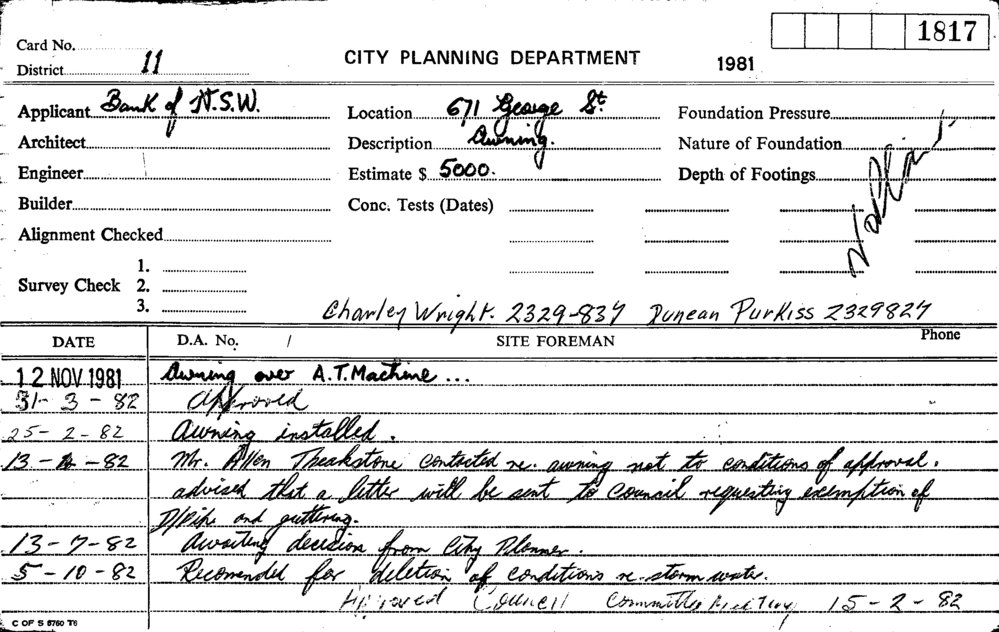 1817
Card No.
District 11
CITY PLANNING DEPARTMENT 1981
Applicant Bank of N.S.W.
Location 671 George St.
Foundation Pressure
Architect
Description Awning.
Nature of Foundation
Engineer
Estimate $ 5000.
Depth of Footings
Builder
Conc. Tests (Dates)
Alignment Checked
Survey Check 1.
2.
3.
Charley Wright. 2329-837 Duncan Purkiss 2329827
DATE D.A. No. / SITE FOREMAN Phone
12 NOV 1981 Awning over A.T.Machine ...
31-3-82 Approved
25-2-82 Awning installed.
13- -82 Mr. Allen Theakstone contacted re. awning not to conditions of approval.
advised that a letter will be sent to Council requesting exemption of
D/Pipe and guttering.
13-7-82 Awaiting decision from City Planner.
5-10-82 Recomended for deletion of conditions re-storm water.
Approved Council Committee Meeting 15-2-82
C OF S 6760 T6